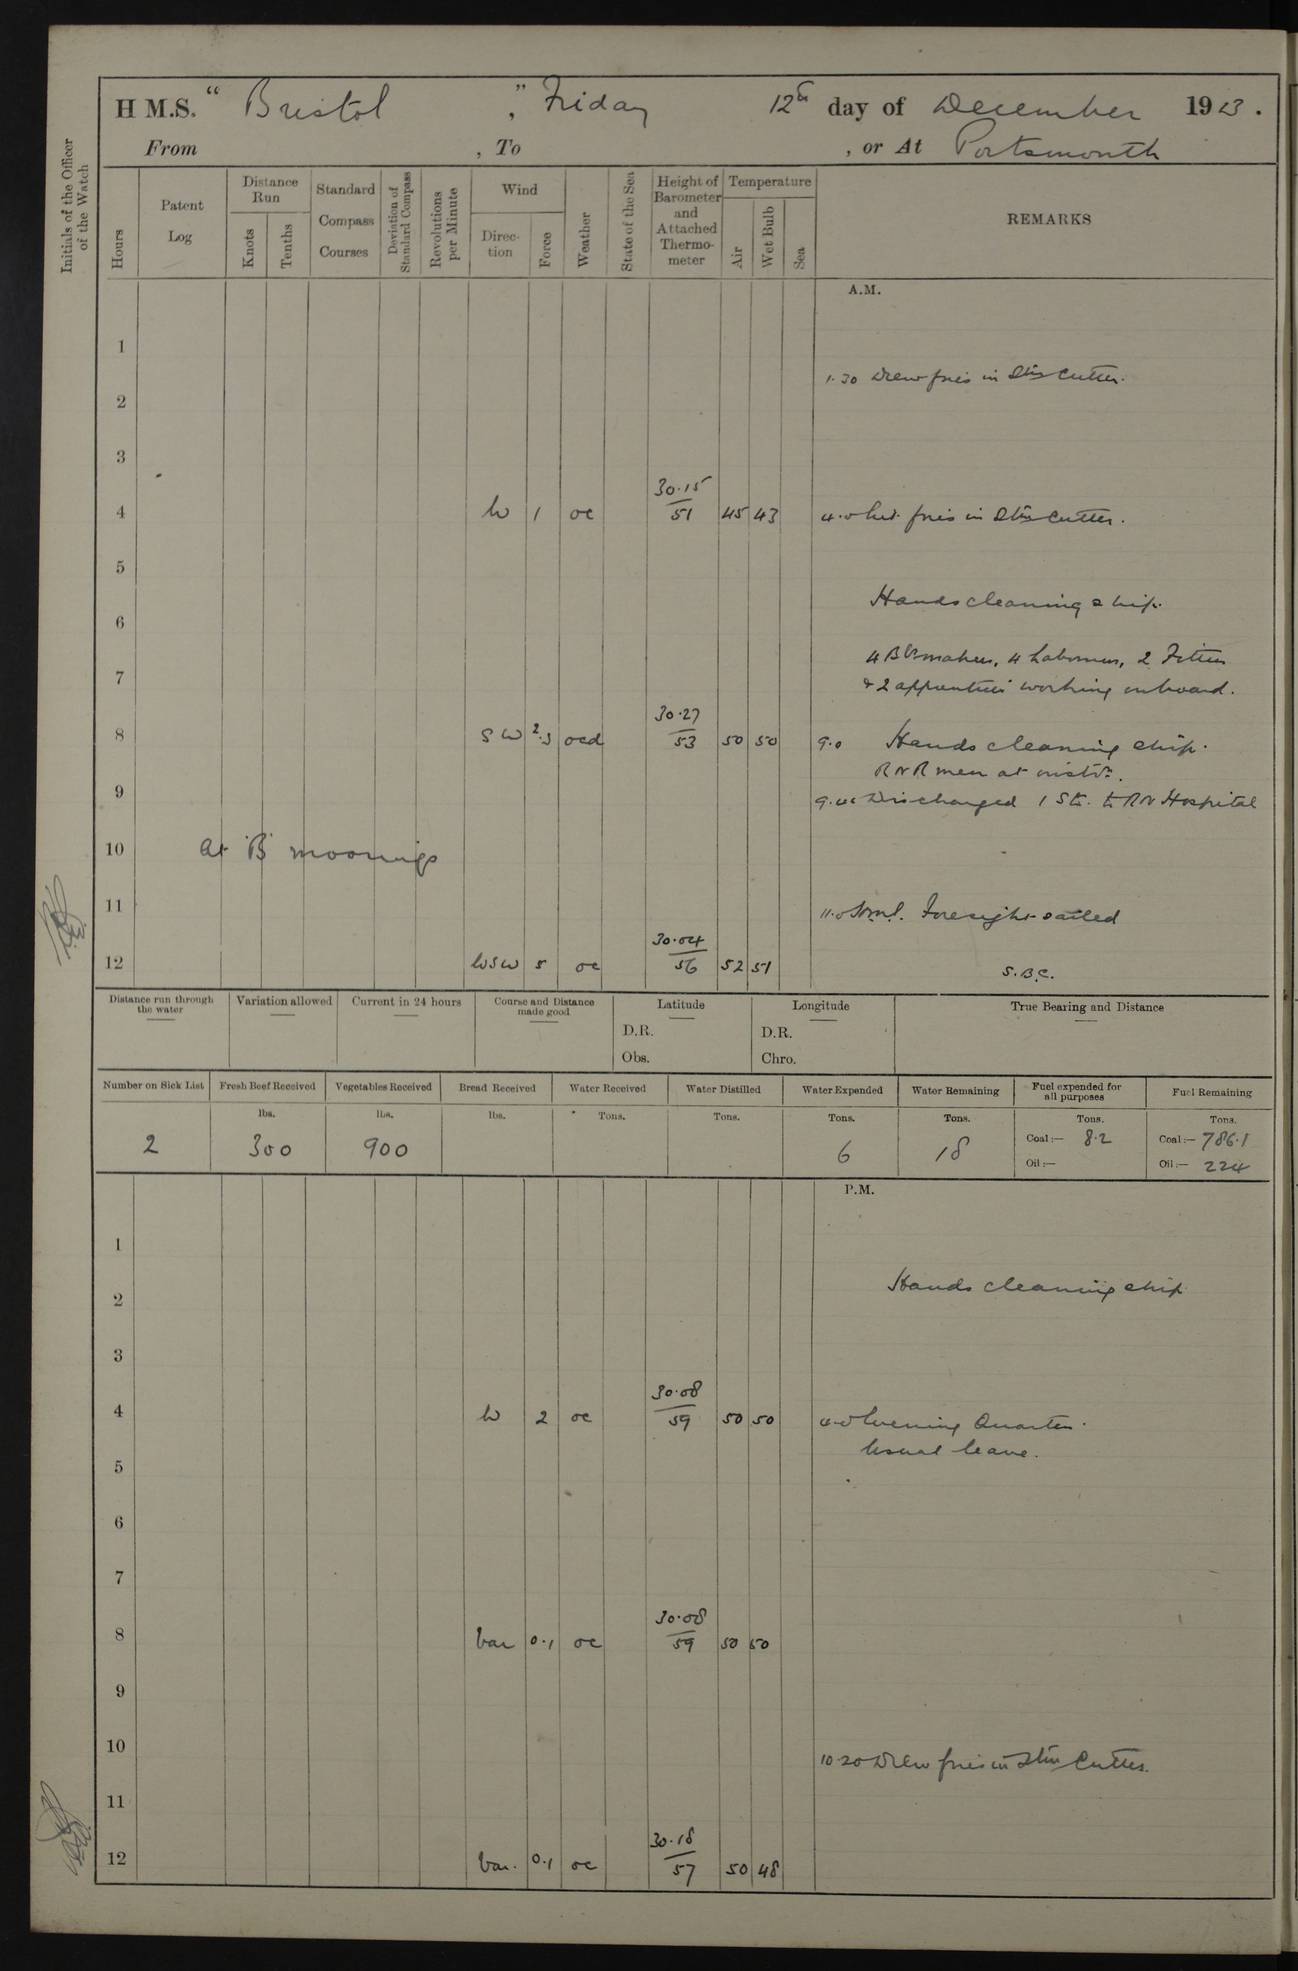 H M.S. “ Bristol ” , Friday 12th day of December 1913 .
From , To , or At Portsmouth
Initials of the Officer of the Watch
Hours
Patent Log
Distance Run
Knots
Tenths
Standard Compass Courses
Deviation of Standard Compass
Revolutions per Minute
Wind
Direction
Force
Weather
State of the Sea
Height of Barometer and Attached Thermometer
Temperature
Air
Wet Bulb
Sea
REMARKS
A.M.
1
1.30 Drew fires in Stm Cutter.
2
3
30.15
4 W 1 oc 51 45 43 4.0 Lit fires in Stm Cutter.
5
Hands cleaning ship.
6
4 Blrmakers, 4 Labourers, 2 Fitters
7
& 2 apprentices working onboard.
30.27
8 SW 2.3 ocd 53 50 50 9.0 Hands cleaning ship.
RNR men at instn.
9
Discharged 1 Sto. to RN Hospital
10 At 'B' moorings
11
11.0 Foresight sailed
30.04
12 WSW 5 oc 56 52 51
S.B.C.
Distance run through the water
Variation allowed
Current in 24 hours
Course and Distance made good
Latitude
D.R.
Obs.
Longitude
D.R.
Chro.
True Bearing and Distance
Number on Sick List Fresh Beef Received Vegetables Received Bread Received Water Received Water Distilled Water Expended Water Remaining Fuel expended for all purposes Fuel Remaining
lbs. lbs. lbs. Tons. Tons. Tons. Tons. Tons. Tons.
2 300 900 6 18 Coal:— 8.2 Coal:— 786.1
Oil:— Oil:— 224
P.M.
1
Hands cleaning ship
2
3
30.08
4 W 2 oc 59 50 50 4.0 Evening Quarters.
Usual leave.
5
6
7
30.08
8 var 0.1 oc 59 50 50
9
10
10.20 Drew fires in Stm Cutter.
11
30.18
12 var. 0.1 oc 57 50 48